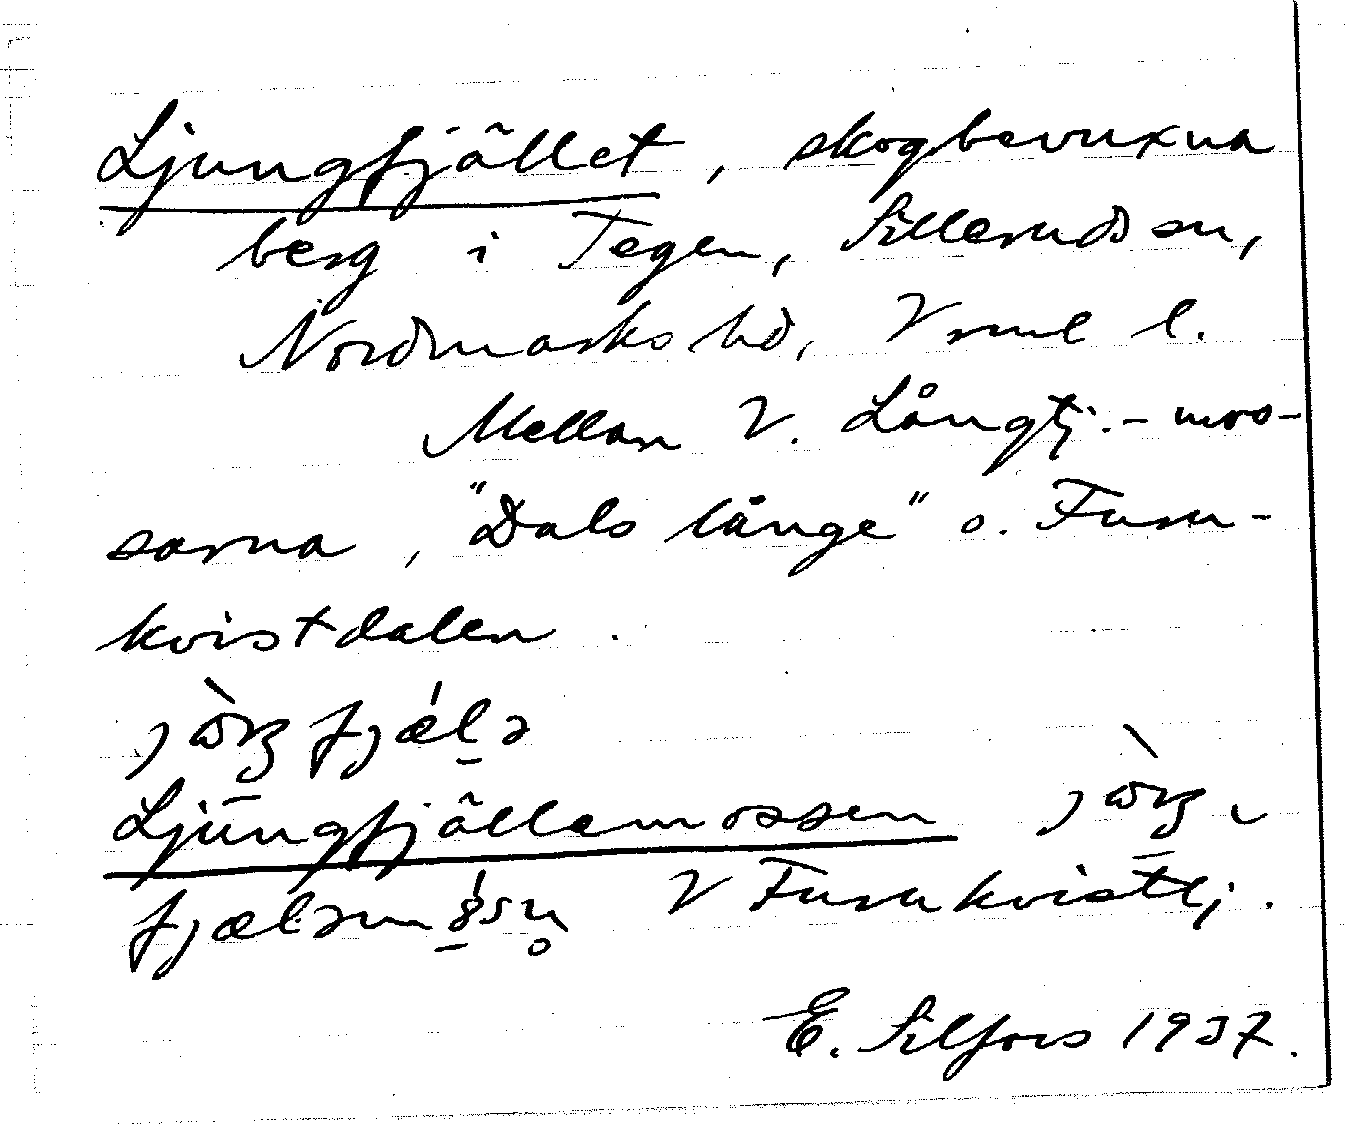 Ljungfjället, skogbevuxna
berg i Tegen, Sillerudssn,
Nordmarks hd, Vrml l.
Mellan V. Långtj.-mos-
sarna, "Dals länge" o. Furu-
kvistdalen.
Ljungfjällemossen
V Furukvisttj.
E. Silfors 1937.